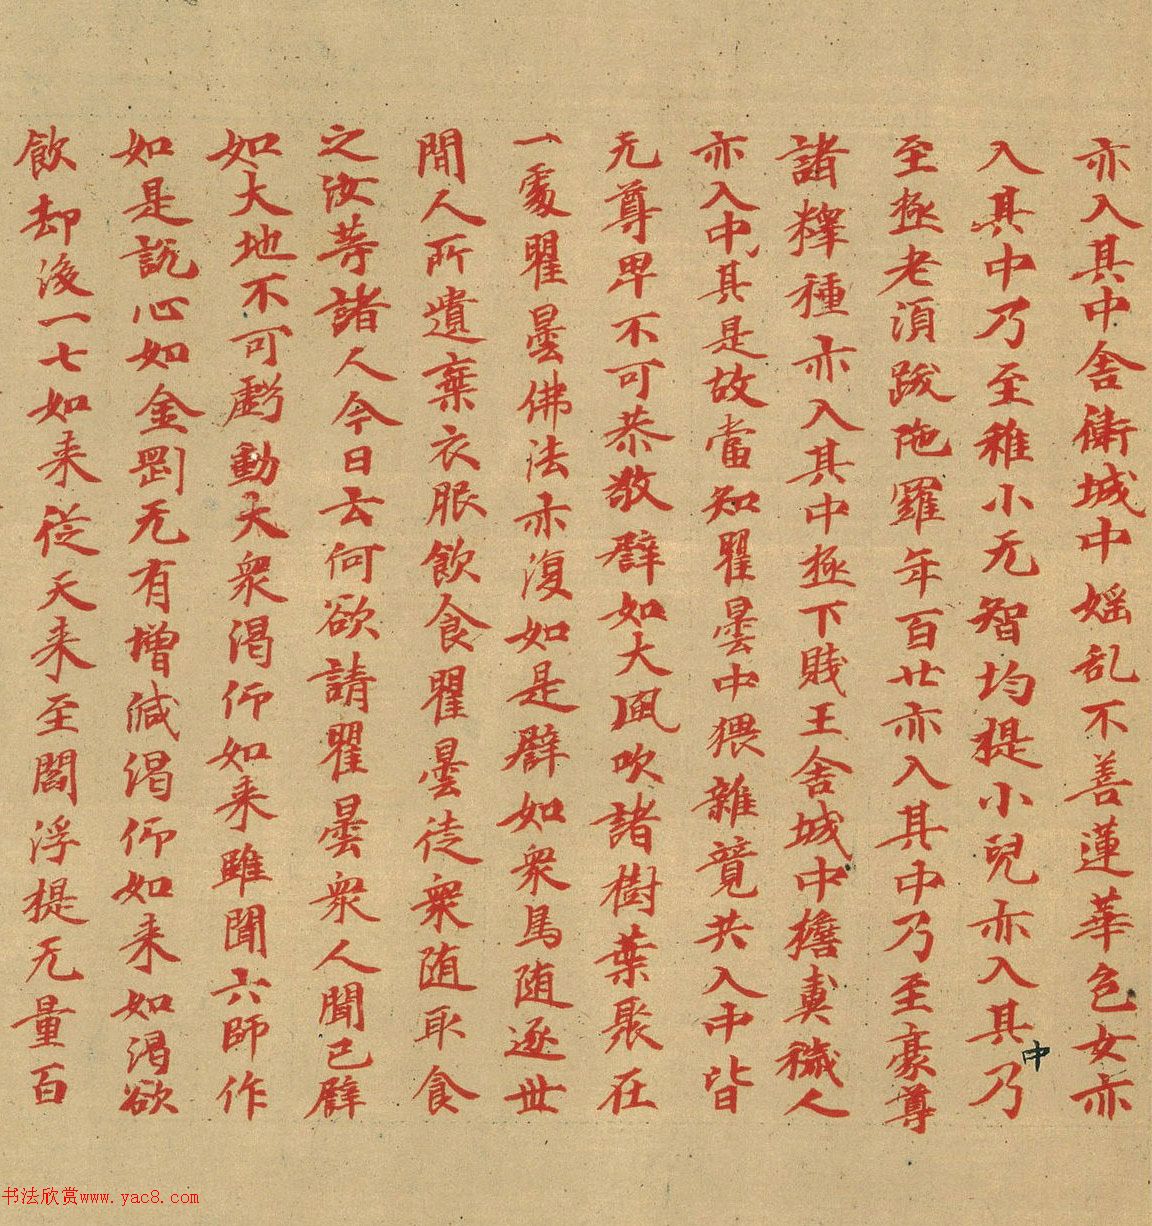 亦入其中舍衛城中婬乱不善蓮華色女亦
入其中乃至稚小无智均提小兒亦入其中乃
至極老湏跋陁羅年百廿亦入其中乃至豪尊
諸釋種亦入其中極下賤王舍城中擔糞穢人
亦入中其是故當知瞿曇中猥雜竟共入中皆
无尊卑不可恭敬譬如大風吹諸樹葉聚在
一處瞿曇佛法亦復如是譬如衆鳥随逐世
間人所遺棄衣服飲食瞿曇徒衆随取食
之汝等諸人今日云何欲請瞿曇衆人聞已譬
如大地不可虧動大衆渴仰如来雖聞六師作
如是說心如金剛无有增減渴仰如来如渴欲
飲却後一七如来從天来至閻浮提无量百
书法欣赏www.yac8.com